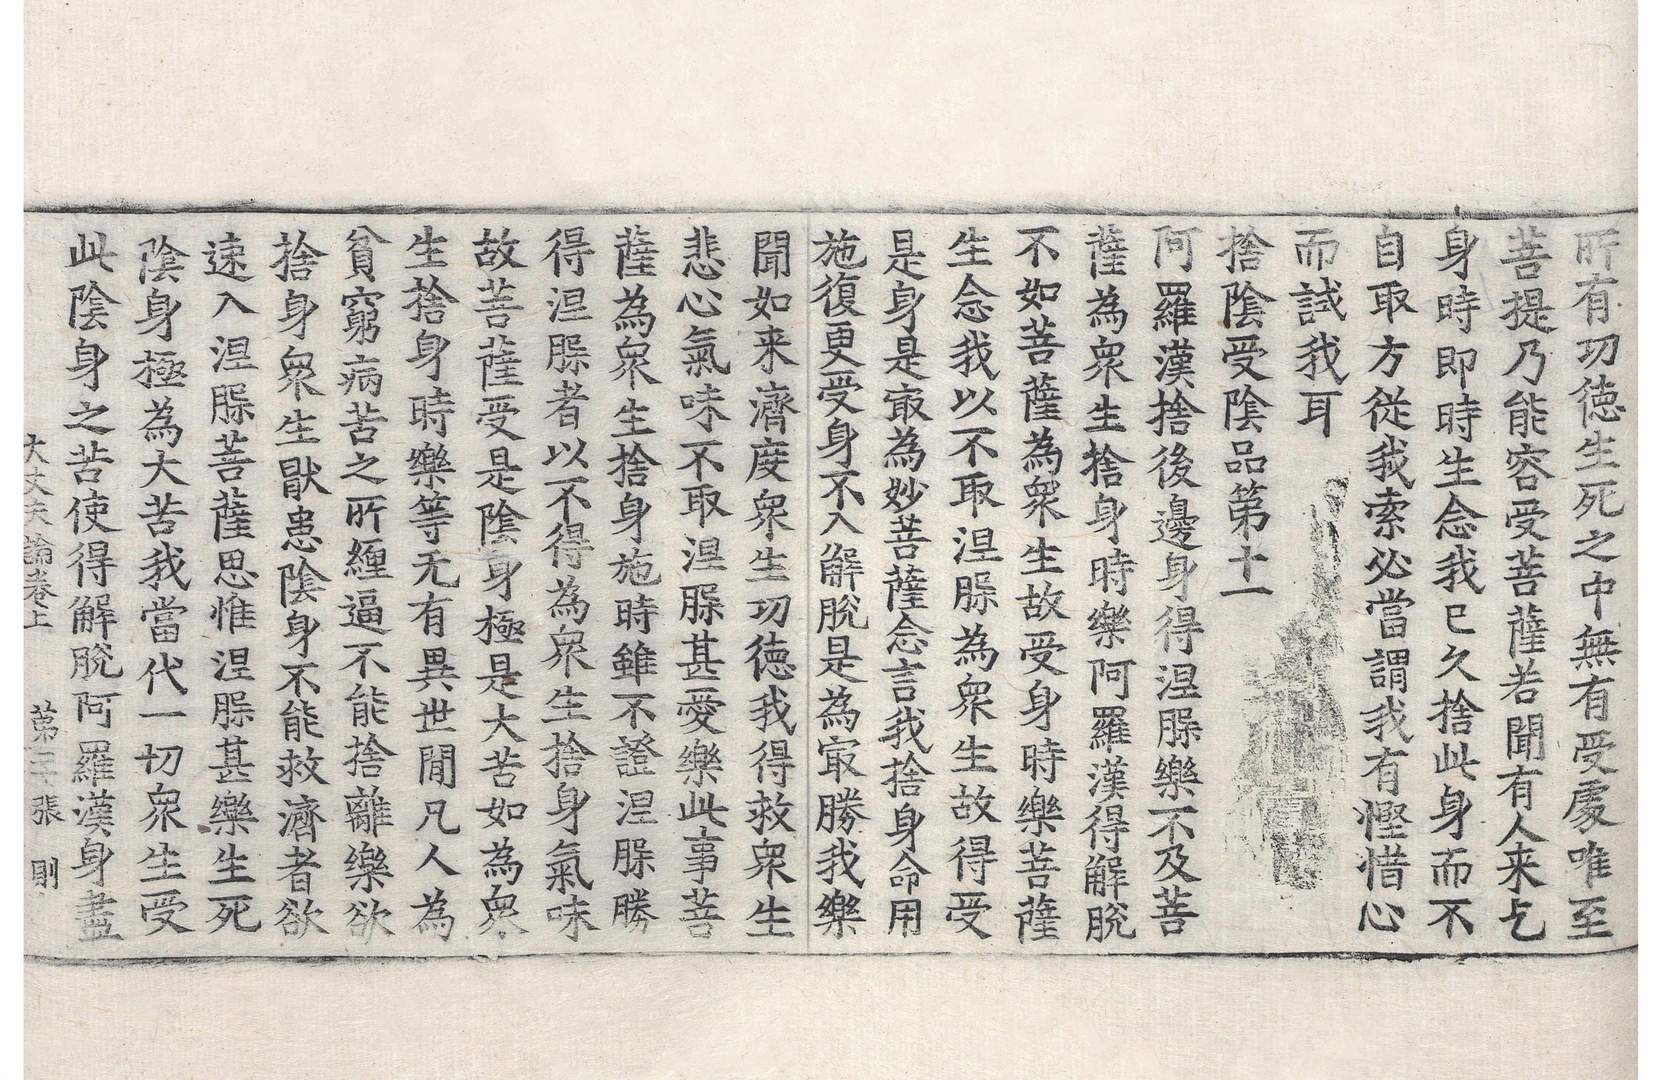 所有功德生死之中無有受處唯至
菩提乃能容受菩薩若聞有人来乞
身時即時生念我已久捨此身而不
自取方從我索必當謂我有慳惜心
而試我耳
捨陰受陰品第十一
阿羅漢捨後邊身得涅槃樂不及菩
薩為衆生捨身時樂阿羅漢得解脫
不如菩薩為衆生故受身時樂菩薩
生念我以不取涅槃為衆生故得受
是身是冣為妙菩薩念言我捨身命用
施復更受身不入解脫是為冣勝我樂
聞如来濟度衆生功德我得救衆生
悲心氣味不取涅槃甚愛樂此事菩
薩為衆生捨身施時雖不證涅槃勝
得涅槃者以不得為衆生捨身氣味
故菩薩受是陰身極是大苦如為衆
生捨身時樂等无有異世間凡人為
貧窮病苦之所纏逼不能捨離樂欲
捨身衆生猒患陰身不能救濟者欲
速入涅槃菩薩思惟涅槃甚樂生死
陰身極為大苦我當代一切衆生受
此陰身之苦使得解脫阿羅漢身盡
大丈夫論卷上 第二十張 則